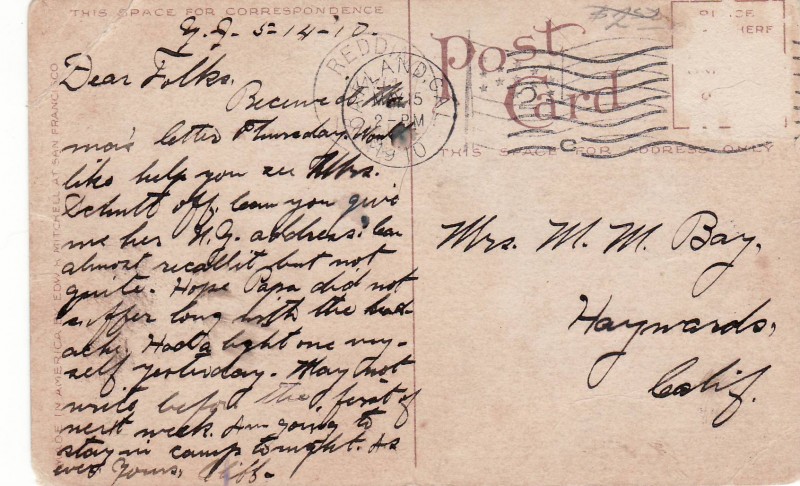 THIS SPACE FOR CORRESPONDENCE
5-14-10.
Dear Folks,
Received Ma
ma's letter Thursday. Would
like help you see Mrs.
Schutt off. Can you give
me her N.Y. address? Can
almost recall it but not
quite. Hope Papa did not
suffer long with the head-
ache. Had a light one my-
self yesterday. May not
write before the first of
next week. Am going to
stay in camp tonight. As
ever Yours, Cliff-
MADE IN AMERICA BY EDW. H. MITCHELL AT SAN FRANCISCO
REDDING
OAKLAND, CAL.
MAY 15
2-PM
1910
Post
Card
2
C
PLACE
HERE
THIS SPACE FOR ADDRESS ONLY
Mrs. M. M. Bay,
Haywards,
Calif.